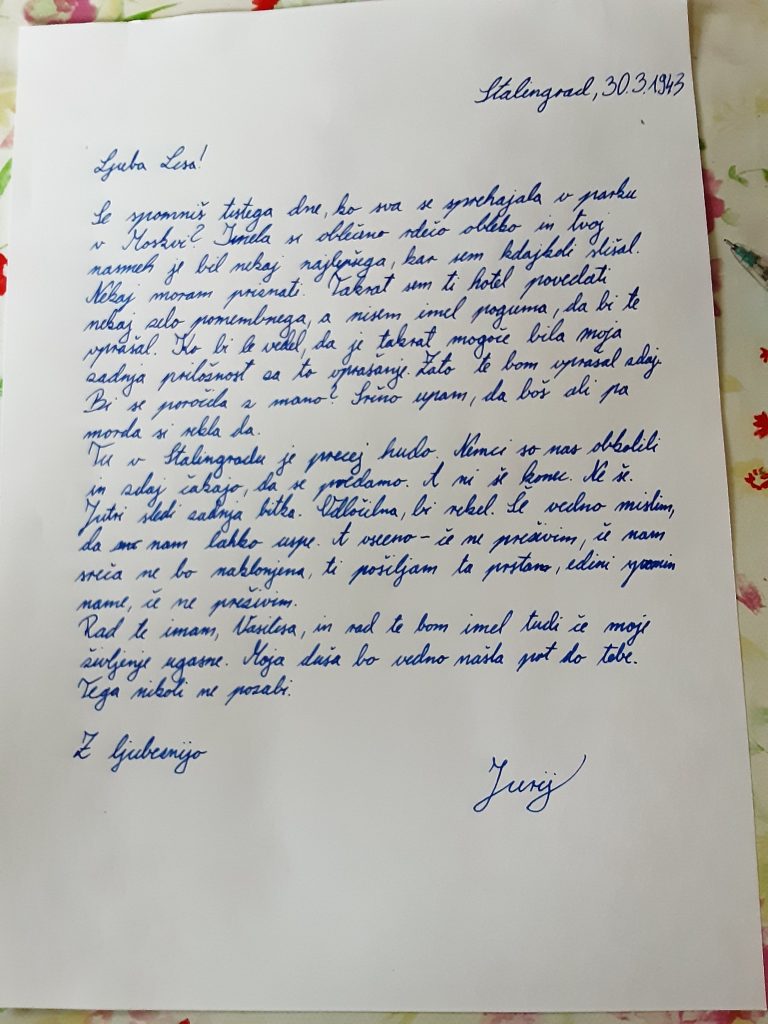 Stalingrad, 30.3.1943
Ljuba Lesa!
Se spomniš tistega dne, ko sva se sprehajala v parku
v Moskvi? Imela si oblečeno rdečo obleko in tvoj
nasmeh je bil nekaj najlepšega, kar sem kdajkoli slišal.
Nekaj moram priznati. Takrat sem ti hotel povedati
nekaj zelo pomembnega, a nisem imel poguma, da bi te
vprašal. Ko bi le vedel, da je takrat mogoče bila moja
zadnja priložnost za to vprašanje. Zato te bom vprašal zdaj.
Bi se poročila z mano? Srčno upam, da boš ali pa
morda si rekla da.
Tu v Stalingradu je precej hudo. Nemci so nas obkolili
in zdaj čakajo, da se predamo. A ni še konec. Ne še.
Jutri sledi zadnja bitka. Odločilna, bi rekel. Še vedno mislim,
da nam lahko uspe. A vseeno - če ne preživim, če nam
sreča ne bo naklonjena, ti pošiljam ta prstan, edini spomin
name, če ne preživim.
Rad te imam, Vasilesa, in rad te bom imel tudi če moje
življenje ugasne. Moja duša bo vedno našla pot do tebe.
Tega nikoli ne pozabi.
Z ljubeznijo
Jurij